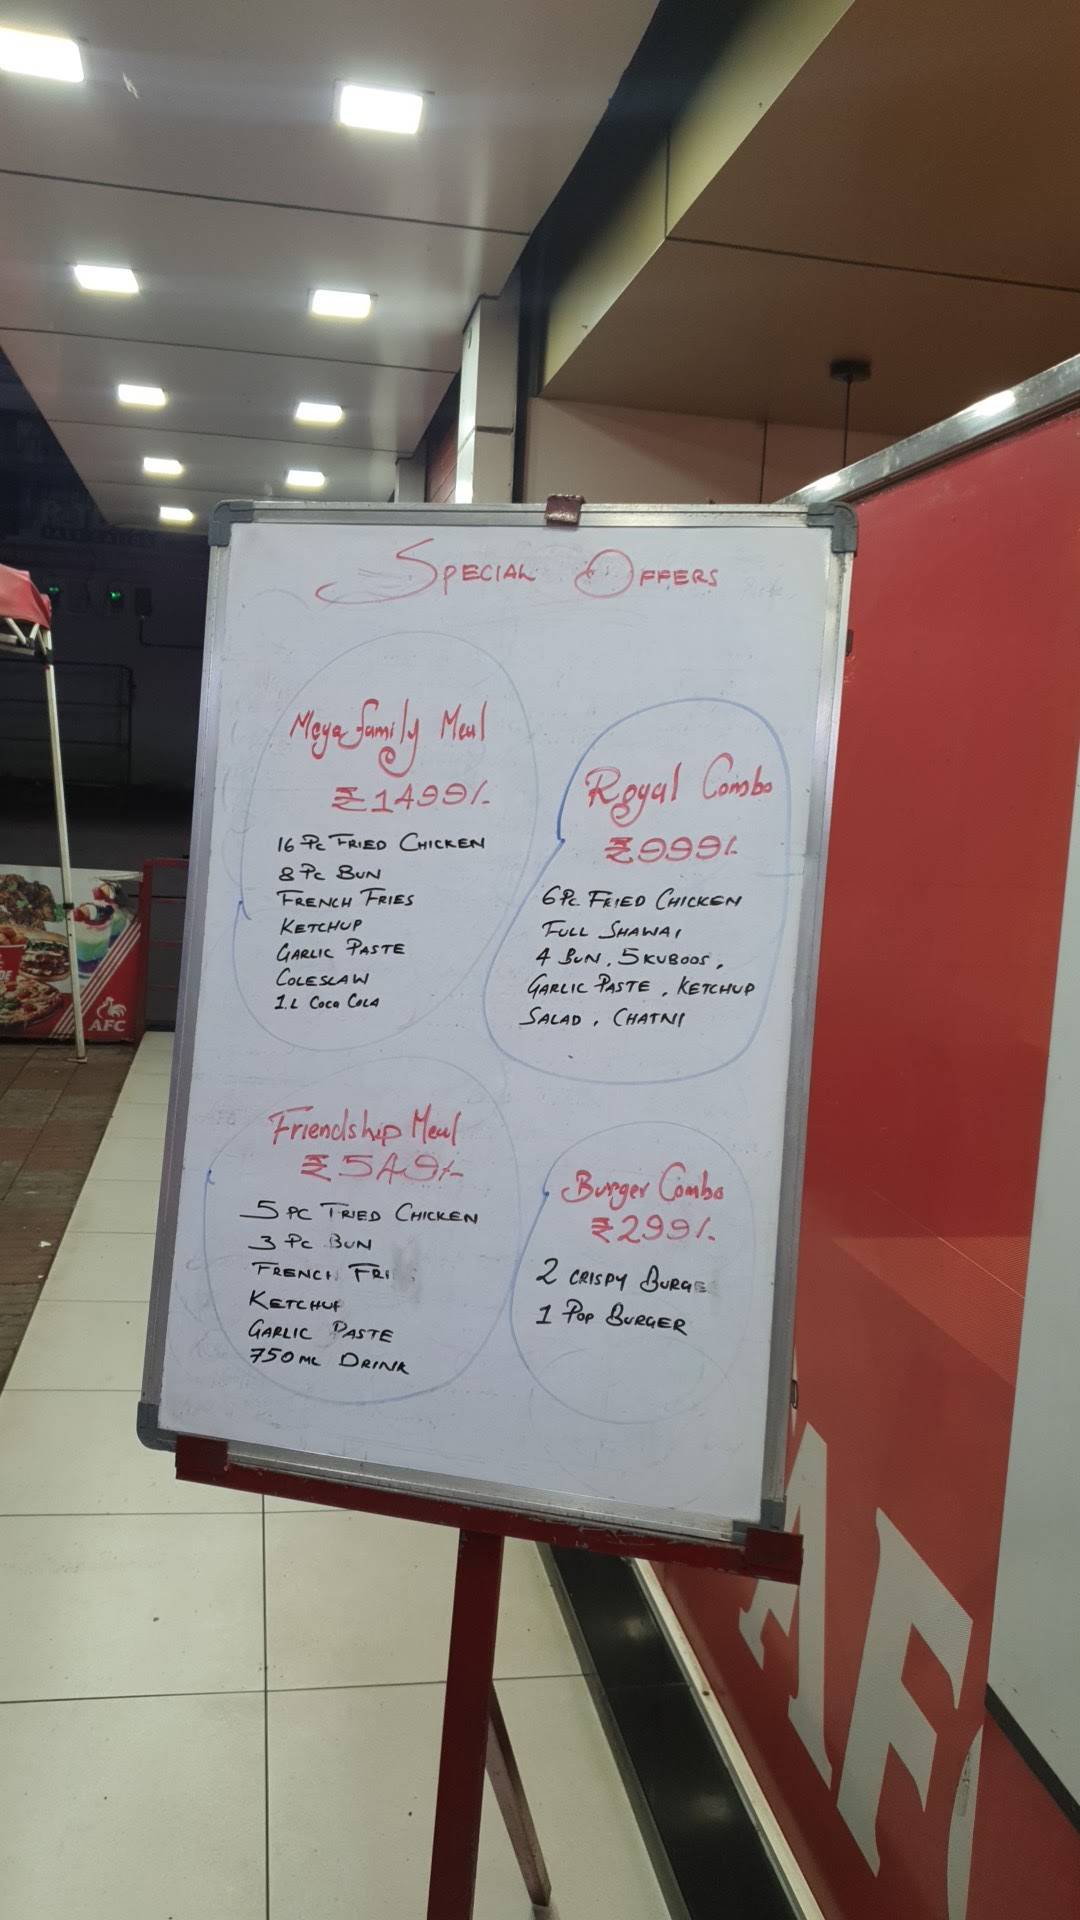 Special Offers
Mega family Meal
₹1499/-
16 Pc Fried Chicken
8 Pc Bun
French Fries
Ketchup
Garlic Paste
Coleslaw
1.L Coca Cola
Royal Combo
₹999/-
6 Pc. Fried Chicken
Full Shawai
4 Bun, 5 Kuboos,
Garlic Paste, Ketchup
Salad, Chatni
Friendship Meal
₹549/-
5 pc Fried Chicken
3 Pc Bun
French Fri
Ketchup
Garlic Paste
750 ml Drink
Burger Combo
₹299/-
2 crispy Burge
1 Pop Burger
AFC
AFC